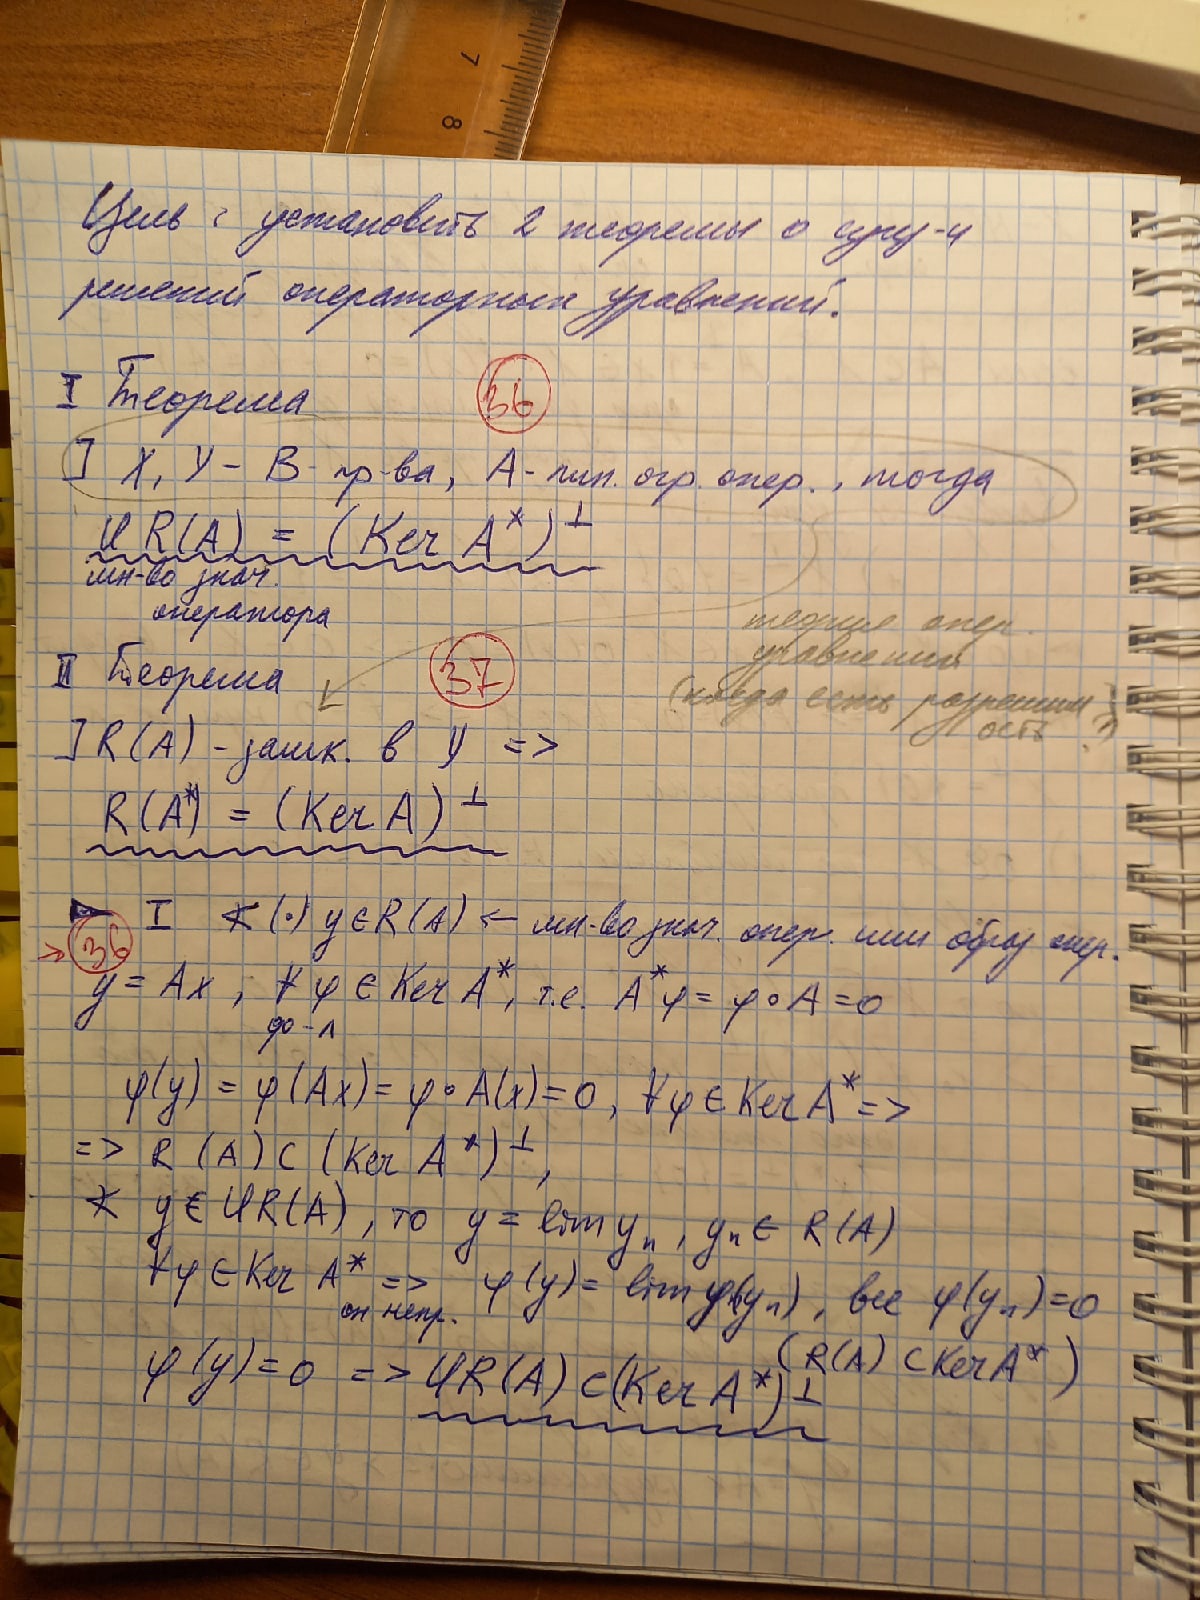 7
8
Цель: установить 2 теоремы о сущ-и
решений операторных уравнений.
I Теорема 36
] X, Y - B-пр-ва, A-лин. огр. опер., тогда
Cl R(A) = (Ker A*)⊥
мн-во знач.
оператора
теория опер.
уравнения
(когда есть разрешим
ость ?)
II Теорема 37
] R(A) - замк. в Y =>
R(A*) = (Ker A)⊥
I ∢ (·) y ∈ R(A) ← мн-во знач. опер. или образ опер.
→ 36
y = Ax, ∀ φ ∈ Ker A*, т.е. A*φ = φ∘A = 0
ф-л
φ(y) = φ(Ax) = φ∘A(x) = 0, ∀φ ∈ Ker A* =>
=> R(A) ⊂ (Ker A*)⊥,
∢ y ∈ Cl R(A), то y = lim yₙ, yₙ ∈ R(A)
∀φ ∈ Ker A* => φ(y) = lim φ(yₙ), все φ(yₙ) = 0
он непр.
(R(A) ⊂ Ker A*)
φ(y) = 0 => Cl R(A) ⊂ (Ker A*)⊥